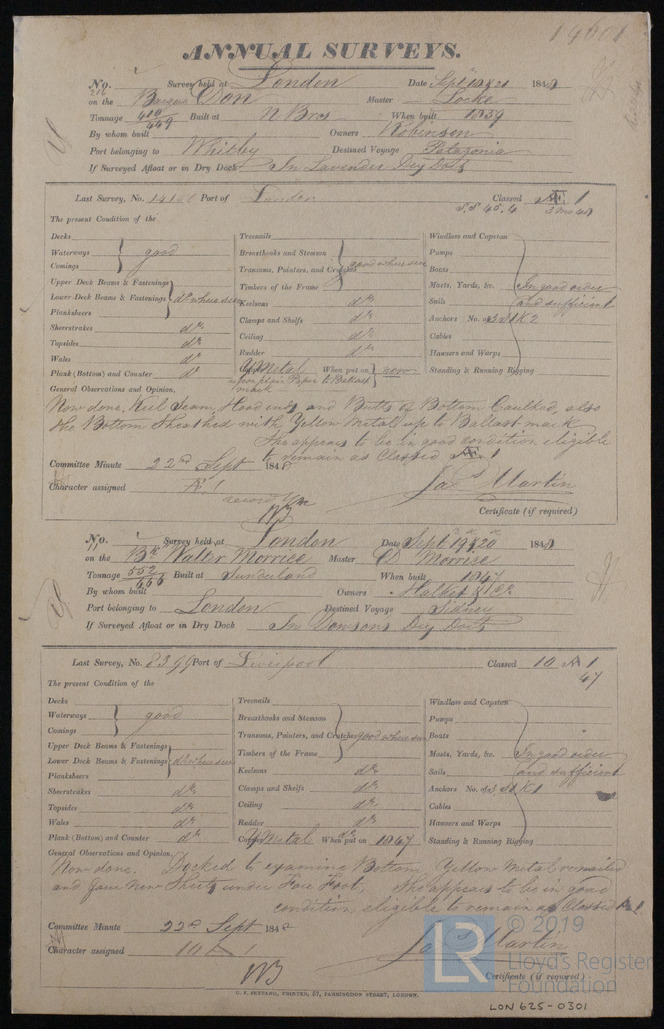 14601
ANNUAL SURVEYS.
No. 216 Survey held at London Date Sept 19 & 21 184
on the Barque Don Master Locke
Tonnage 410 449 Built at N Brns When built 1839
By whom built Owners Robinson
Port belonging to Whitby Destined Voyage Patagonia
If Surveyed Afloat or in Dry Dock In Lavender Dry Dock
Last Survey, No. Port of London Classed Æ 1
S.S 45.4
The present Condition of the
Decks
Waterways
Comings
good
Upper Deck Beams & Fastenings
Lower Deck Beams & Fastenings
Planksheers
do where seen
Sheerstrakes do
Topsides do
Wales do
Plank (Bottom) and Counter do
Treenails
Breasthooks and Stemson
Transoms, Pointers, and Crutches
Timbers of the Frame
good where seen
Keelsons do
Clamps and Shelfs do
Ceiling do
Rudder do
Y Metal When put on now
upon plain Paper to Ballast mark
Windlass and Capstan
Pumps
Boats
Masts, Yards, &c.
Sails
Anchors No. of 3 S 1 K 2
Cables
Hawsers and Warps
Standing & Running Rigging
In good order
and sufficient
General Observations and Opinion,
Now done. Keel Seam, Hood ends and Butts of Bottom Caulked, also
the Bottom Sheathed with Yellow Metal up to Ballast mark
She appears to be in good condition eligible
to remain as Classed Æ 1
Committee Minute 22nd Sept 184
Character assigned Æ 1
Jas Martin
Certificate (if required)
No. 11 Survey held at London Date Sept 19 & 20 184
on the Bk Walter Morrice Master D Morrice
Tonnage 552 666 Built at Sunderland When built 1847
By whom built Owners
Port belonging to London Destined Voyage Sidney
If Surveyed Afloat or in Dry Dock In Dowsons Dry Dock
Last Survey, No. 8399 Port of Liverpool Classed 10 A 1
47
The present Condition of the
Decks
Waterways
Comings
good
Upper Deck Beams & Fastenings
Lower Deck Beams & Fastenings
Planksheers
do where seen
Sheerstrakes do
Topsides do
Wales do
Plank (Bottom) and Counter do
Treenails
Breasthooks and Stemson
Transoms, Pointers, and Crutches
Timbers of the Frame
good where seen
Keelsons do
Clamps and Shelfs do
Ceiling do
Rudder do
Y Metal When put on 1847
Windlass and Capston
Pumps
Boats
Masts, Yards, &c.
Sails
Anchors No. of 3 S 1 K 1
Cables
Hawsers and Warps
Standing & Running Rigging
In good order
and sufficient
General Observations and Opinion,
Now done. Docked to examine Bottom, Yellow Metal repaired
and four New Sheets under Fore Foot, She appears to be in good
condition, eligible to remain as Classed A 1
Committee Minute 22d Sept 184
Character assigned 10 A 1
Jas Martin
Certificate (if required)
C. F. SEYFANG, PRINTER, 57, FARRINGDON STREET, LONDON.
LR © 2019
Lloyd's Register
Foundation
LON 625-0301